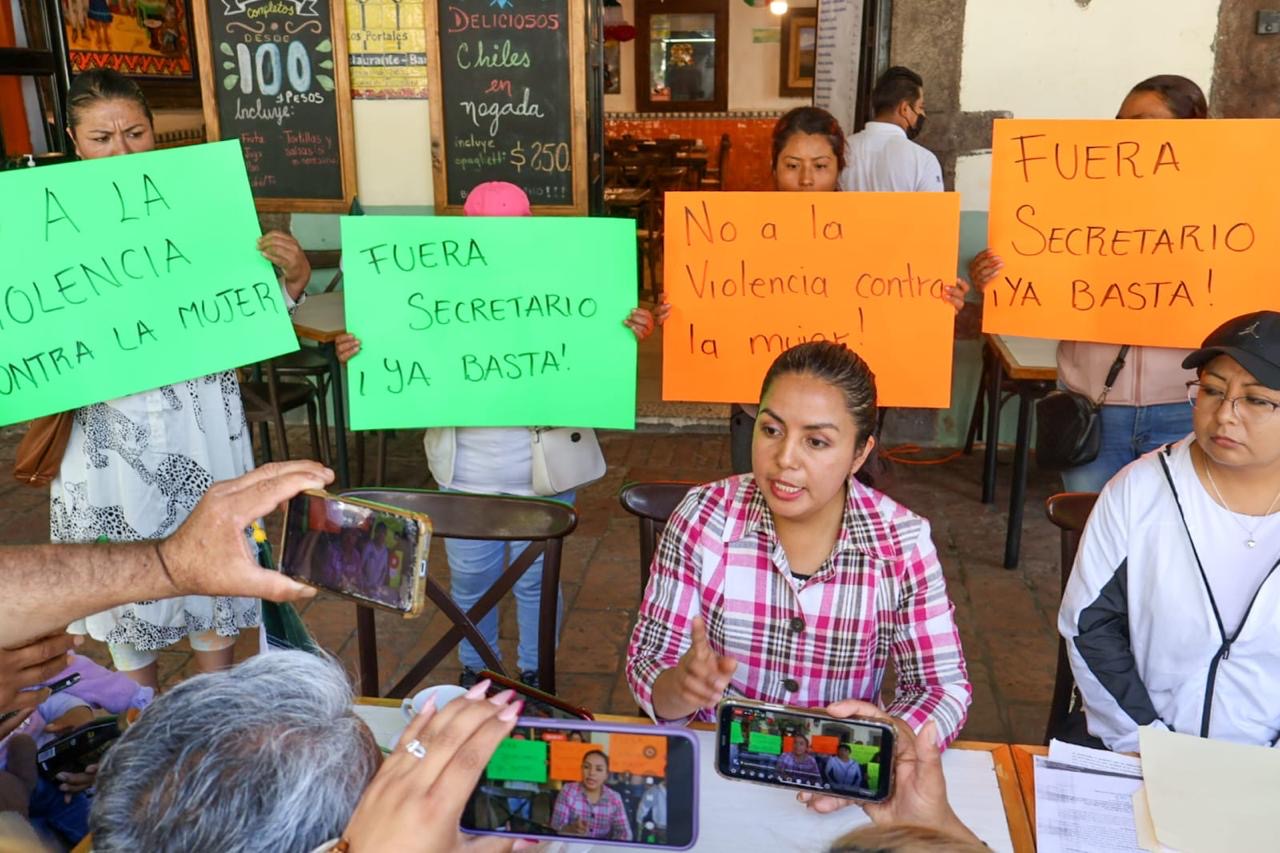 Completos
DESDE
100
PESOS
Incluye:
Fruta
Tortillas y
Jugo
salsas si
Los Portales
Restaurante-Bar
DELICIOSOS
Chiles
en
nogada
incluye
spaglietti $250.
A LA
VIOLENCIA
CONTRA LA MUJER
FUERA
SECRETARIO
¡YA BASTA!
No a la
Violencia contra
la mujer!
FUERA
SECRETARIO
¡YA BASTA!